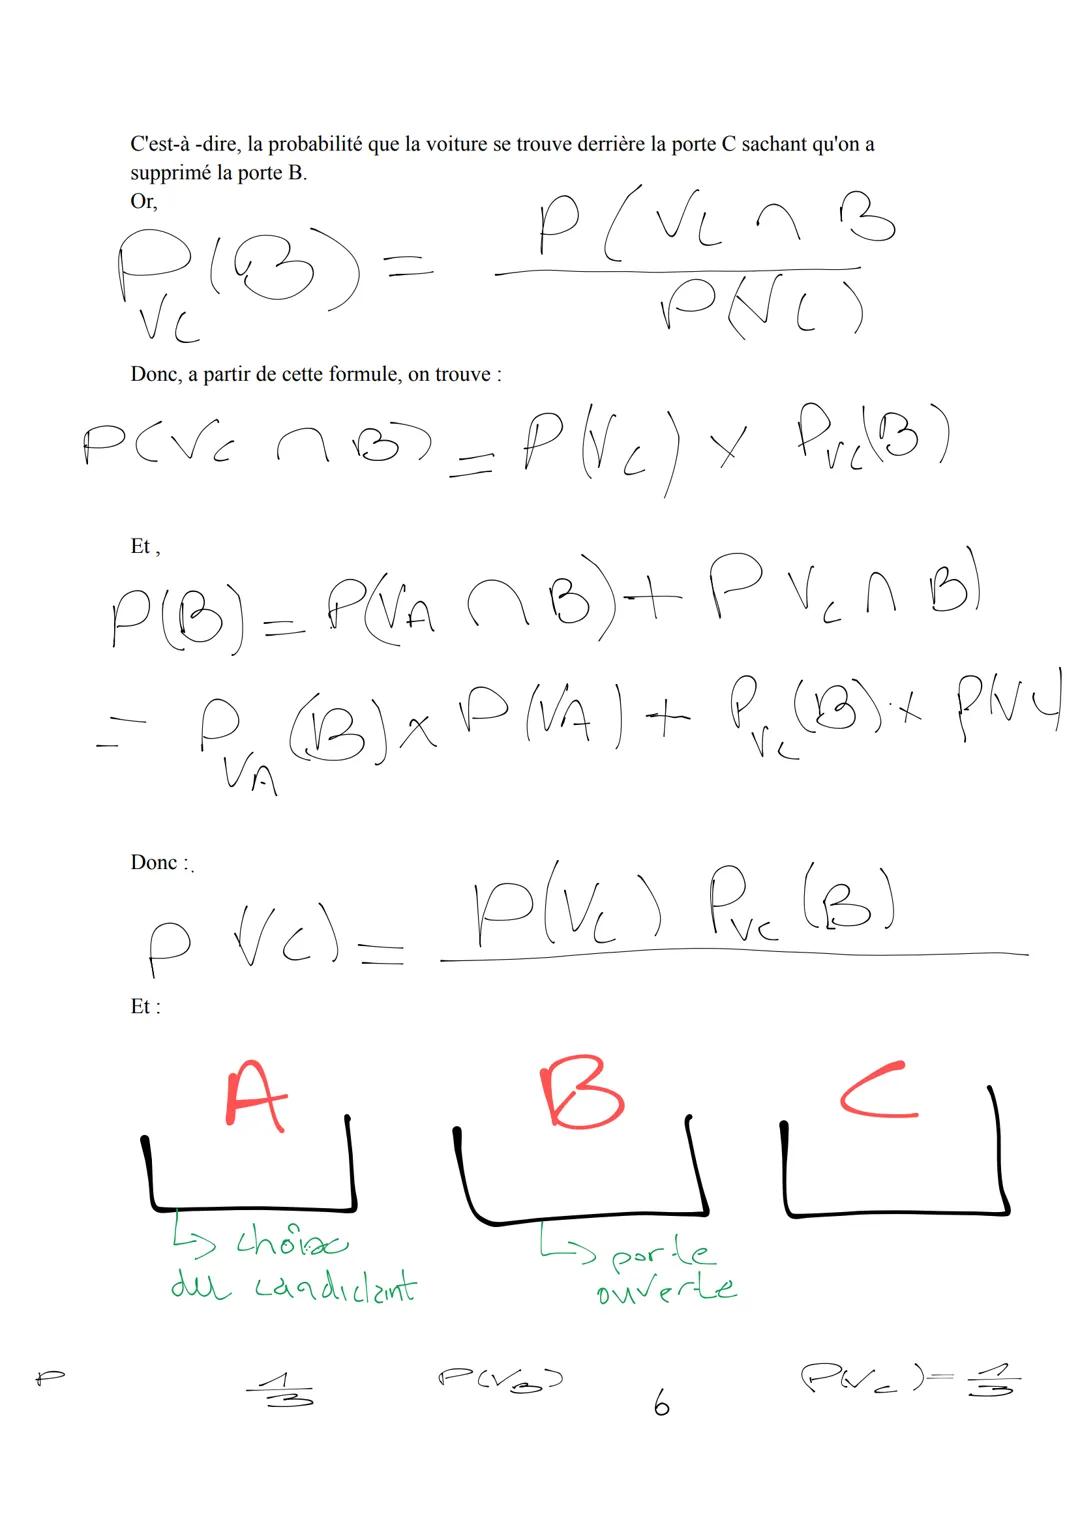 C'est-à -dire, la probabilité que la voiture se trouve derrière la porte C sachant qu'on a
supprimé la porte B.
Or,
P(VC ∩ B
P_VC(B) = ―――
P(VC)
Donc, a partir de cette formule, on trouve :
P(VC ∩ B) = P(VC) × P_VC(B)
Et ,
P(B) = P(VA ∩ B) + P VC ∩ B)
= P_VA(B) × P(VA) + P_VC(B) × P(VC
Donc :.
P(VC) P_VC(B)
P VC) = ―――
Et :
A B C
↳ choix ↳ porte
du candidant ouverte
P 1/3 P(VB) P(VC) = 1/3
6